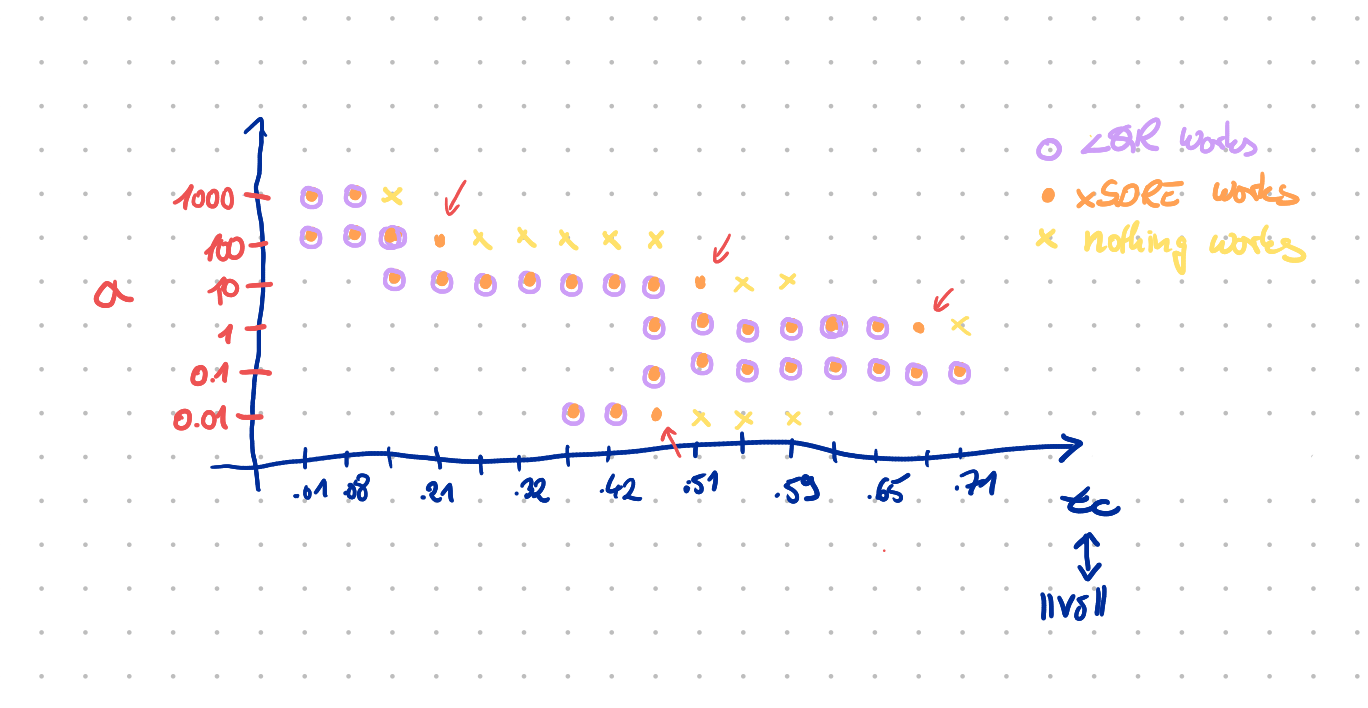 LQR works
xSDRE works
nothing works
1000
100
10
a
1
0.1
0.01
.01 .08 .21 .32 .42 .51 .59 .65 .71
tc
||v8||